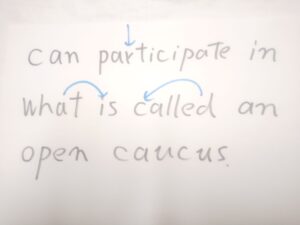 can participate in
what is called an
open caucus.